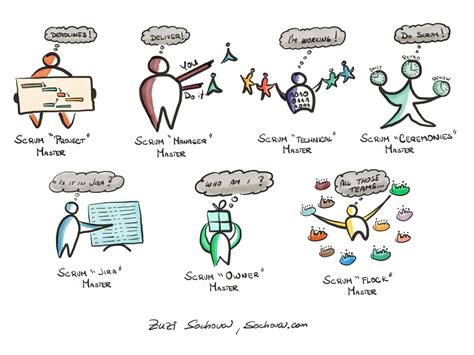 DEADLINES!
DELIVER!
I'm WORKING!
DO SCRUM!
YOU
DO IT
DAILY
RETRO
REVIEW
SCRUM "PROJECT"
MASTER
SCRUM "MANAGER"
MASTER
SCRUM "TECHNICAL"
MASTER
SCRUM "CEREMONIES"
MASTER
IS IT IN JIRA?
WHO AM I?
ALL THOSE
TEAMS...
SCRUM "JIRA"
MASTER
SCRUM "OWNER"
MASTER
SCRUM "FLOCK"
MASTER
ZUZI Sochova, Sochova.com